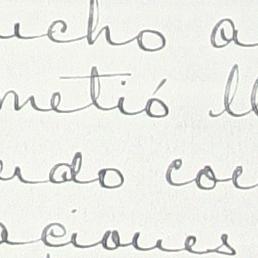 ucho a
metió ll
ndo coc
aciones